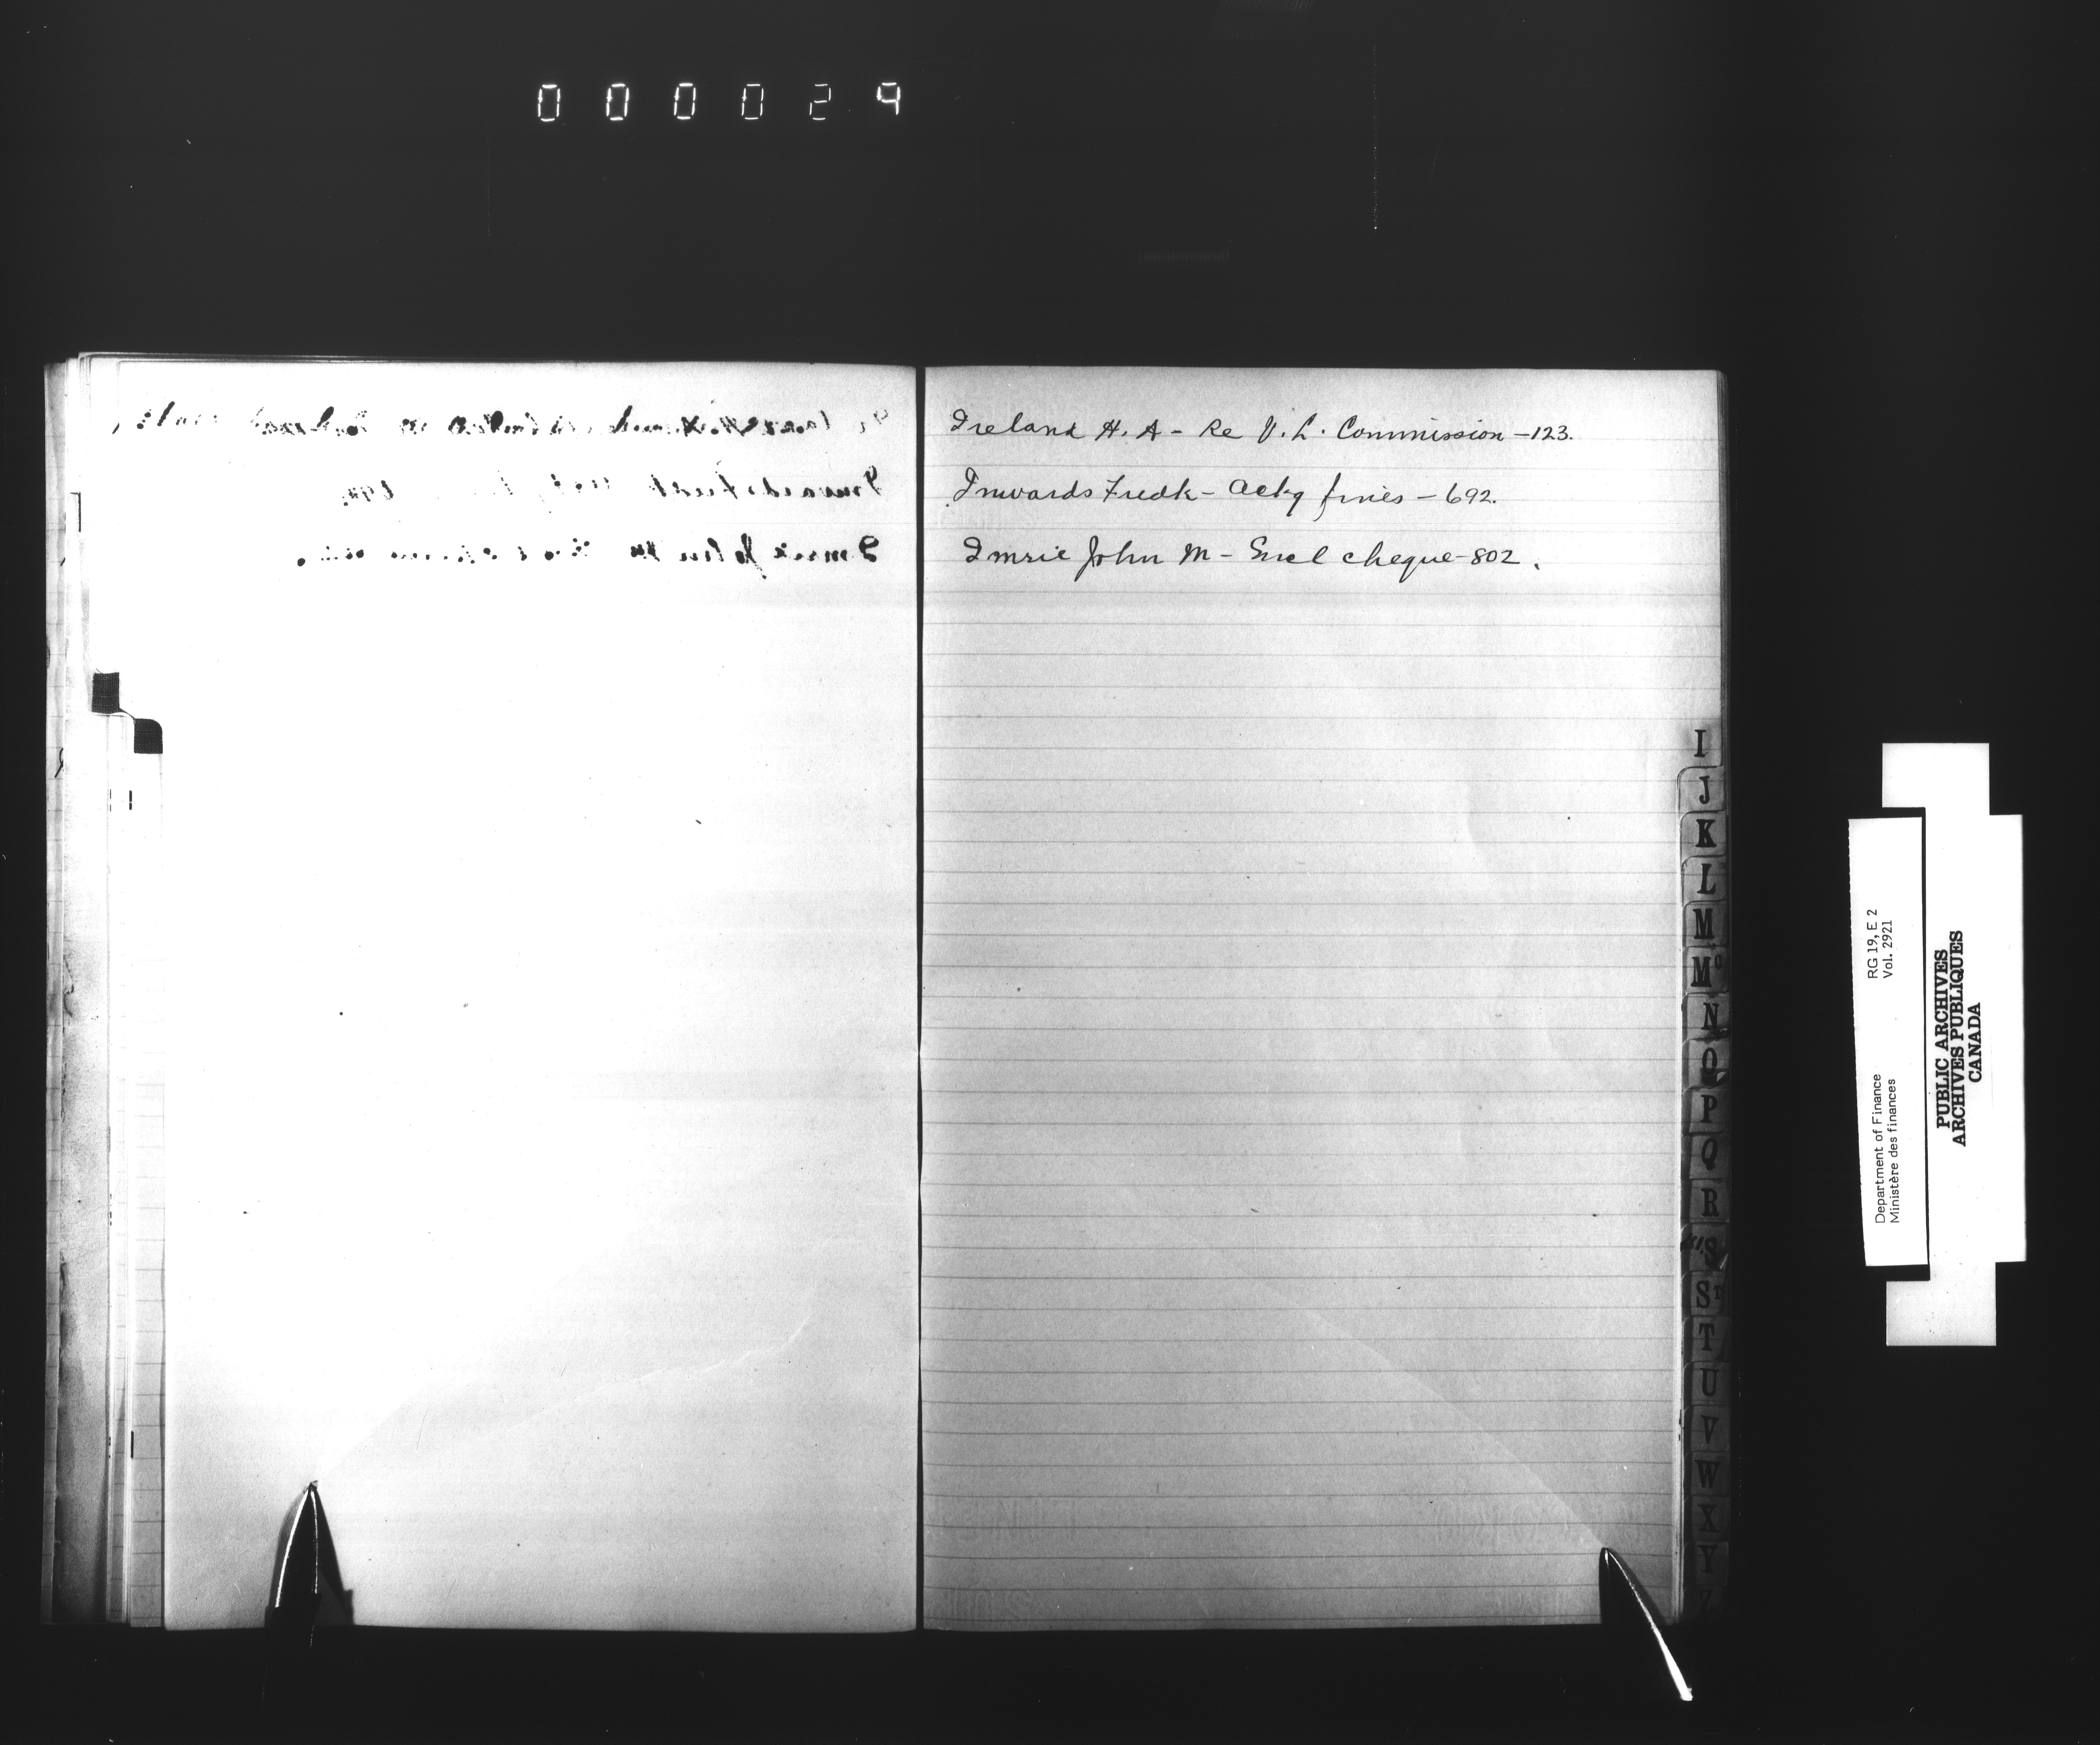 000029
Ireland H. A - Re V. L. Commission - 123.
Inwards Fredk - Ackg fines - 692.
Imrie John M - Encl cheque - 802.
I
J
K
L
M
Mc
N
O
P
Q
R
S
St
T
U
V
W
X
Y
Z
Department of Finance RG 19, E 2
Ministère des finances Vol. 2921
PUBLIC ARCHIVES
ARCHIVES PUBLIQUES
CANADA